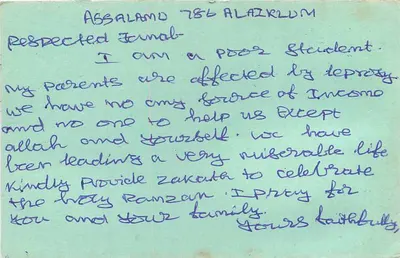 ASSALAMO 786 ALAIKUM
Respected Janab
I am a poor student.
My parents are affected by leprosy
we have no any source of Income
and no one to help us Except
allah and yourself. we have
been leading a very miserable life
kindly provide zakath to celebrate
the holy Ramzan. I pray for
you and your family.
yours faithfully,